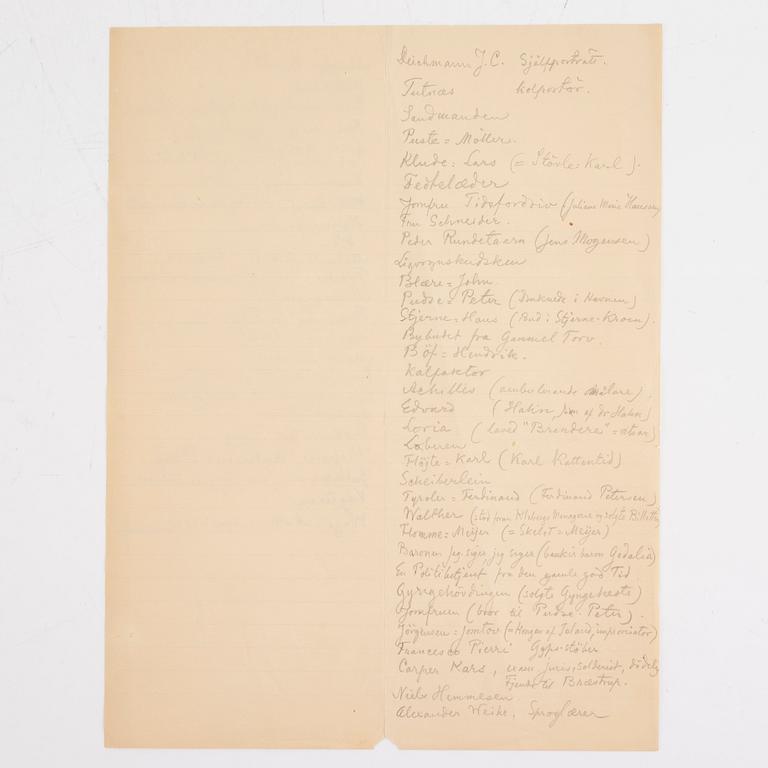 Deichmann J. C. Självporträtt.
Tutnæs kolportör.
Sandmanden
Puste = Möller.
Klude = Lars (= Stövle = Karl).
Fedtelæder
Jomfru Tidsfordriv (Juliane Marie Hansen)
Fru Schneider.
Peder Rundetaarn (Jens Mogensen)
Ligvognskudsken
Blære = John.
Pudse = Peter (druknede i Havnen)
Stjerne = Hans (Bud i Stjerne-Kroen).
Bybudet fra Gammel Torv.
Böf = Hendrik.
Kalfaktor
Achilles (ambulerande målare)
Edvard (Hahn, søn af dr Hahn)
Loria (laved "Brændere" =
Laberen
Fløjte = Karl (Karl Kattentid)
Scheiberlein
Tyroler = Ferdinand (Ferdinand Petersen)
Walther (stod foran Klebergs Menageri og solgte Billetter)
Flomme = Meijer (= Skelet = Meijer)
Baronen jeg siger jeg siger (bankir baron Gedalia)
En Politibetjent fra den gamle gode Tid
Gyngehövdingen (solgte Gyngeheste)
Jomfruen (bror til Pudse-Peter).
Jörgensen = Jomtov (= Kongen af Island, improvisator)
Francesco Pierri Gyps-støber
Carper Kars, exam. juris, solderist, dödelig
Fjende til Bræstrup.
Niels Hemmesen
Alexander Weihe, Sproglærer